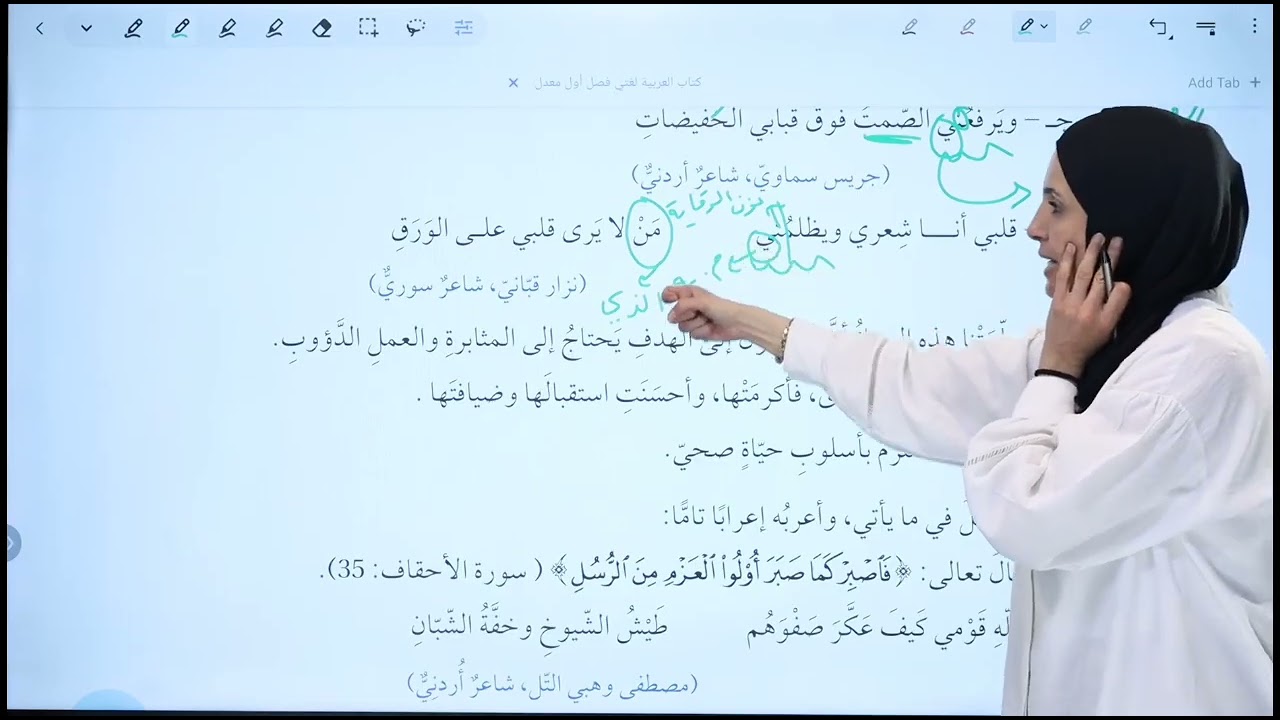 كتاب العربية لغتي فصل أول معدل
Add Tab
جـ – ويَرفعُني الصّمتَ فوق قبابي الخفيضاتِ
(جريس سماويّ، شاعرٌ أردنيٌّ)
نون الوقاية
قلبي أنــا شِعري ويظلمُني مَنْ لا يَرى قلبي علـى الوَرَقِ
م. به الذي
(نزار قبّانيّ، شاعرٌ سوريٌّ)
هذه إلى الهدفِ يَحتاجُ إلى المثابرةِ والعملِ الدَّؤوبِ.
فأكرمَتْها، وأحسَنَتِ استقبالَها وضيافتَها .
بأسلوبِ حيّاةٍ صحيّ.
في ما يأتي، وأعربُه إعرابًا تامًّا:
تعالى: ﴿فَٱصۡبِرۡ كَمَا صَبَرَ أُوْلُواْ ٱلۡعَزۡمِ مِنَ ٱلرُّسُلِ﴾ ( سورة الأحقاف: 35).
قَوْمي كَيفَ عَكَّرَ صَفْوَهُم طَيْشُ الشّيوخِ وخفَّةُ الشّبّانِ
(مصطفى وهبي التّل، شاعرٌ أُردنِيٌّ)